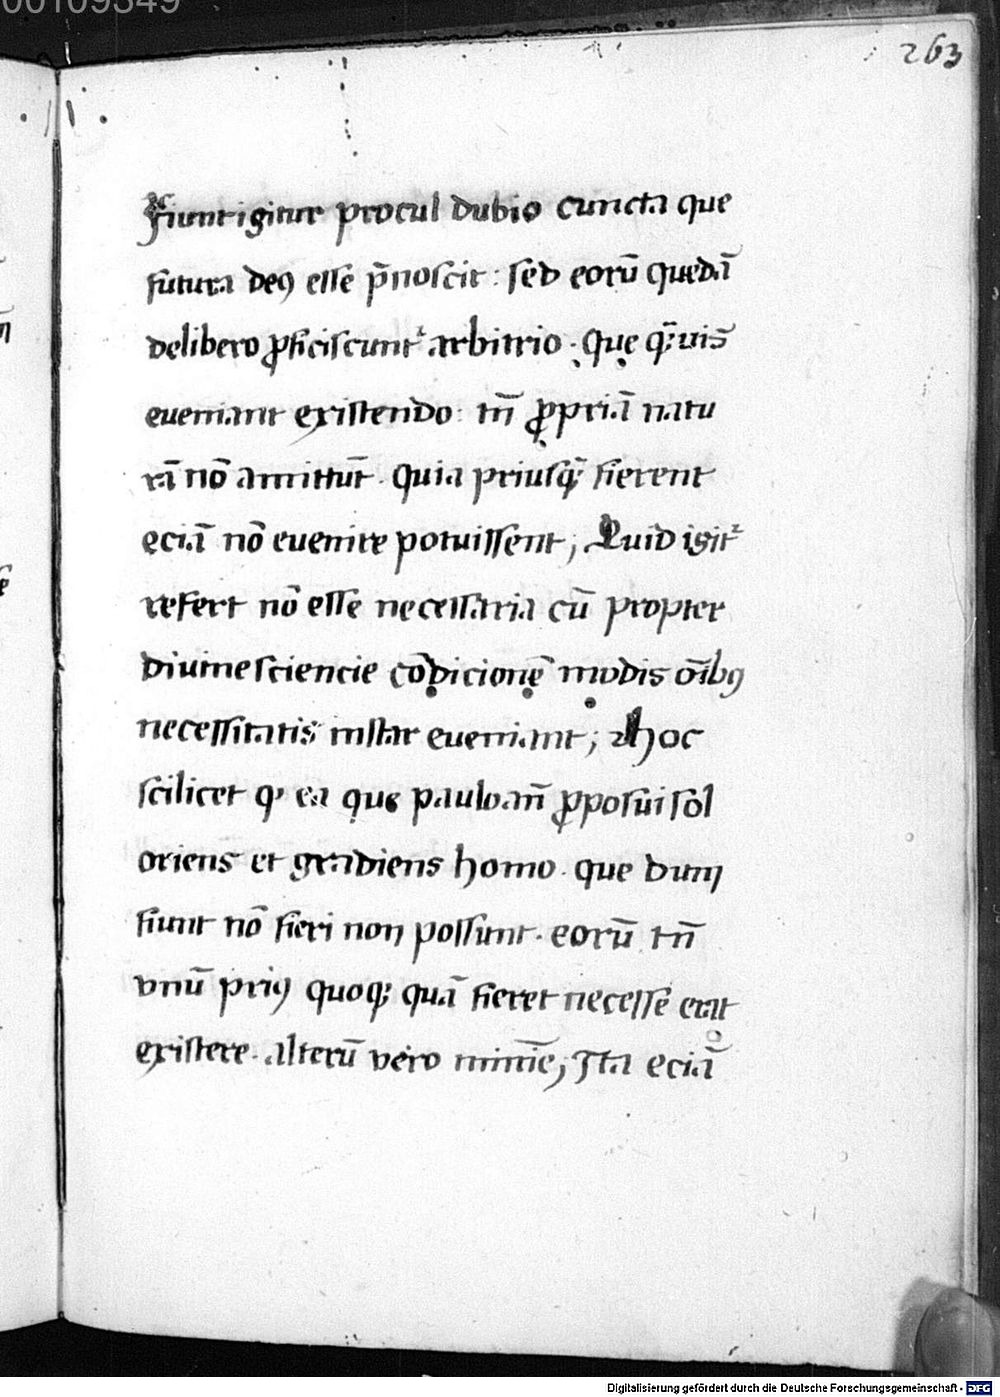 00109349
263
Fiunt igitur procul dubio cuncta que
futura deꝰ esse p̄noscit : sed eorū quedā
de libero ꝓficiscunt᷑ arbitrio . Que q̄uis
eueniant existendo . tn̄ ꝓpriā natu
rā nō amittūt . Quia priusq̄ fierent
eciā nō euenire potuissent ; Quid igit᷑
refert nō esse necessaria cū propter
diuine sciencie cōdicionē modis oībꝰ
necessitatis instar eueniant ; Hoc
scilicet qͥ ea que paulo an̄ ꝓposui sol
oriens et gradiens homo . que dum
fiunt nō fieri non possunt . eorū tn̄
vnū priꝰ quoqꝫ quā fieret necesse erat
existere . alterū vero minīe ; Ita eciā
Digitalisierung gefördert durch die Deutsche Forschungsgemeinschaft - DFG